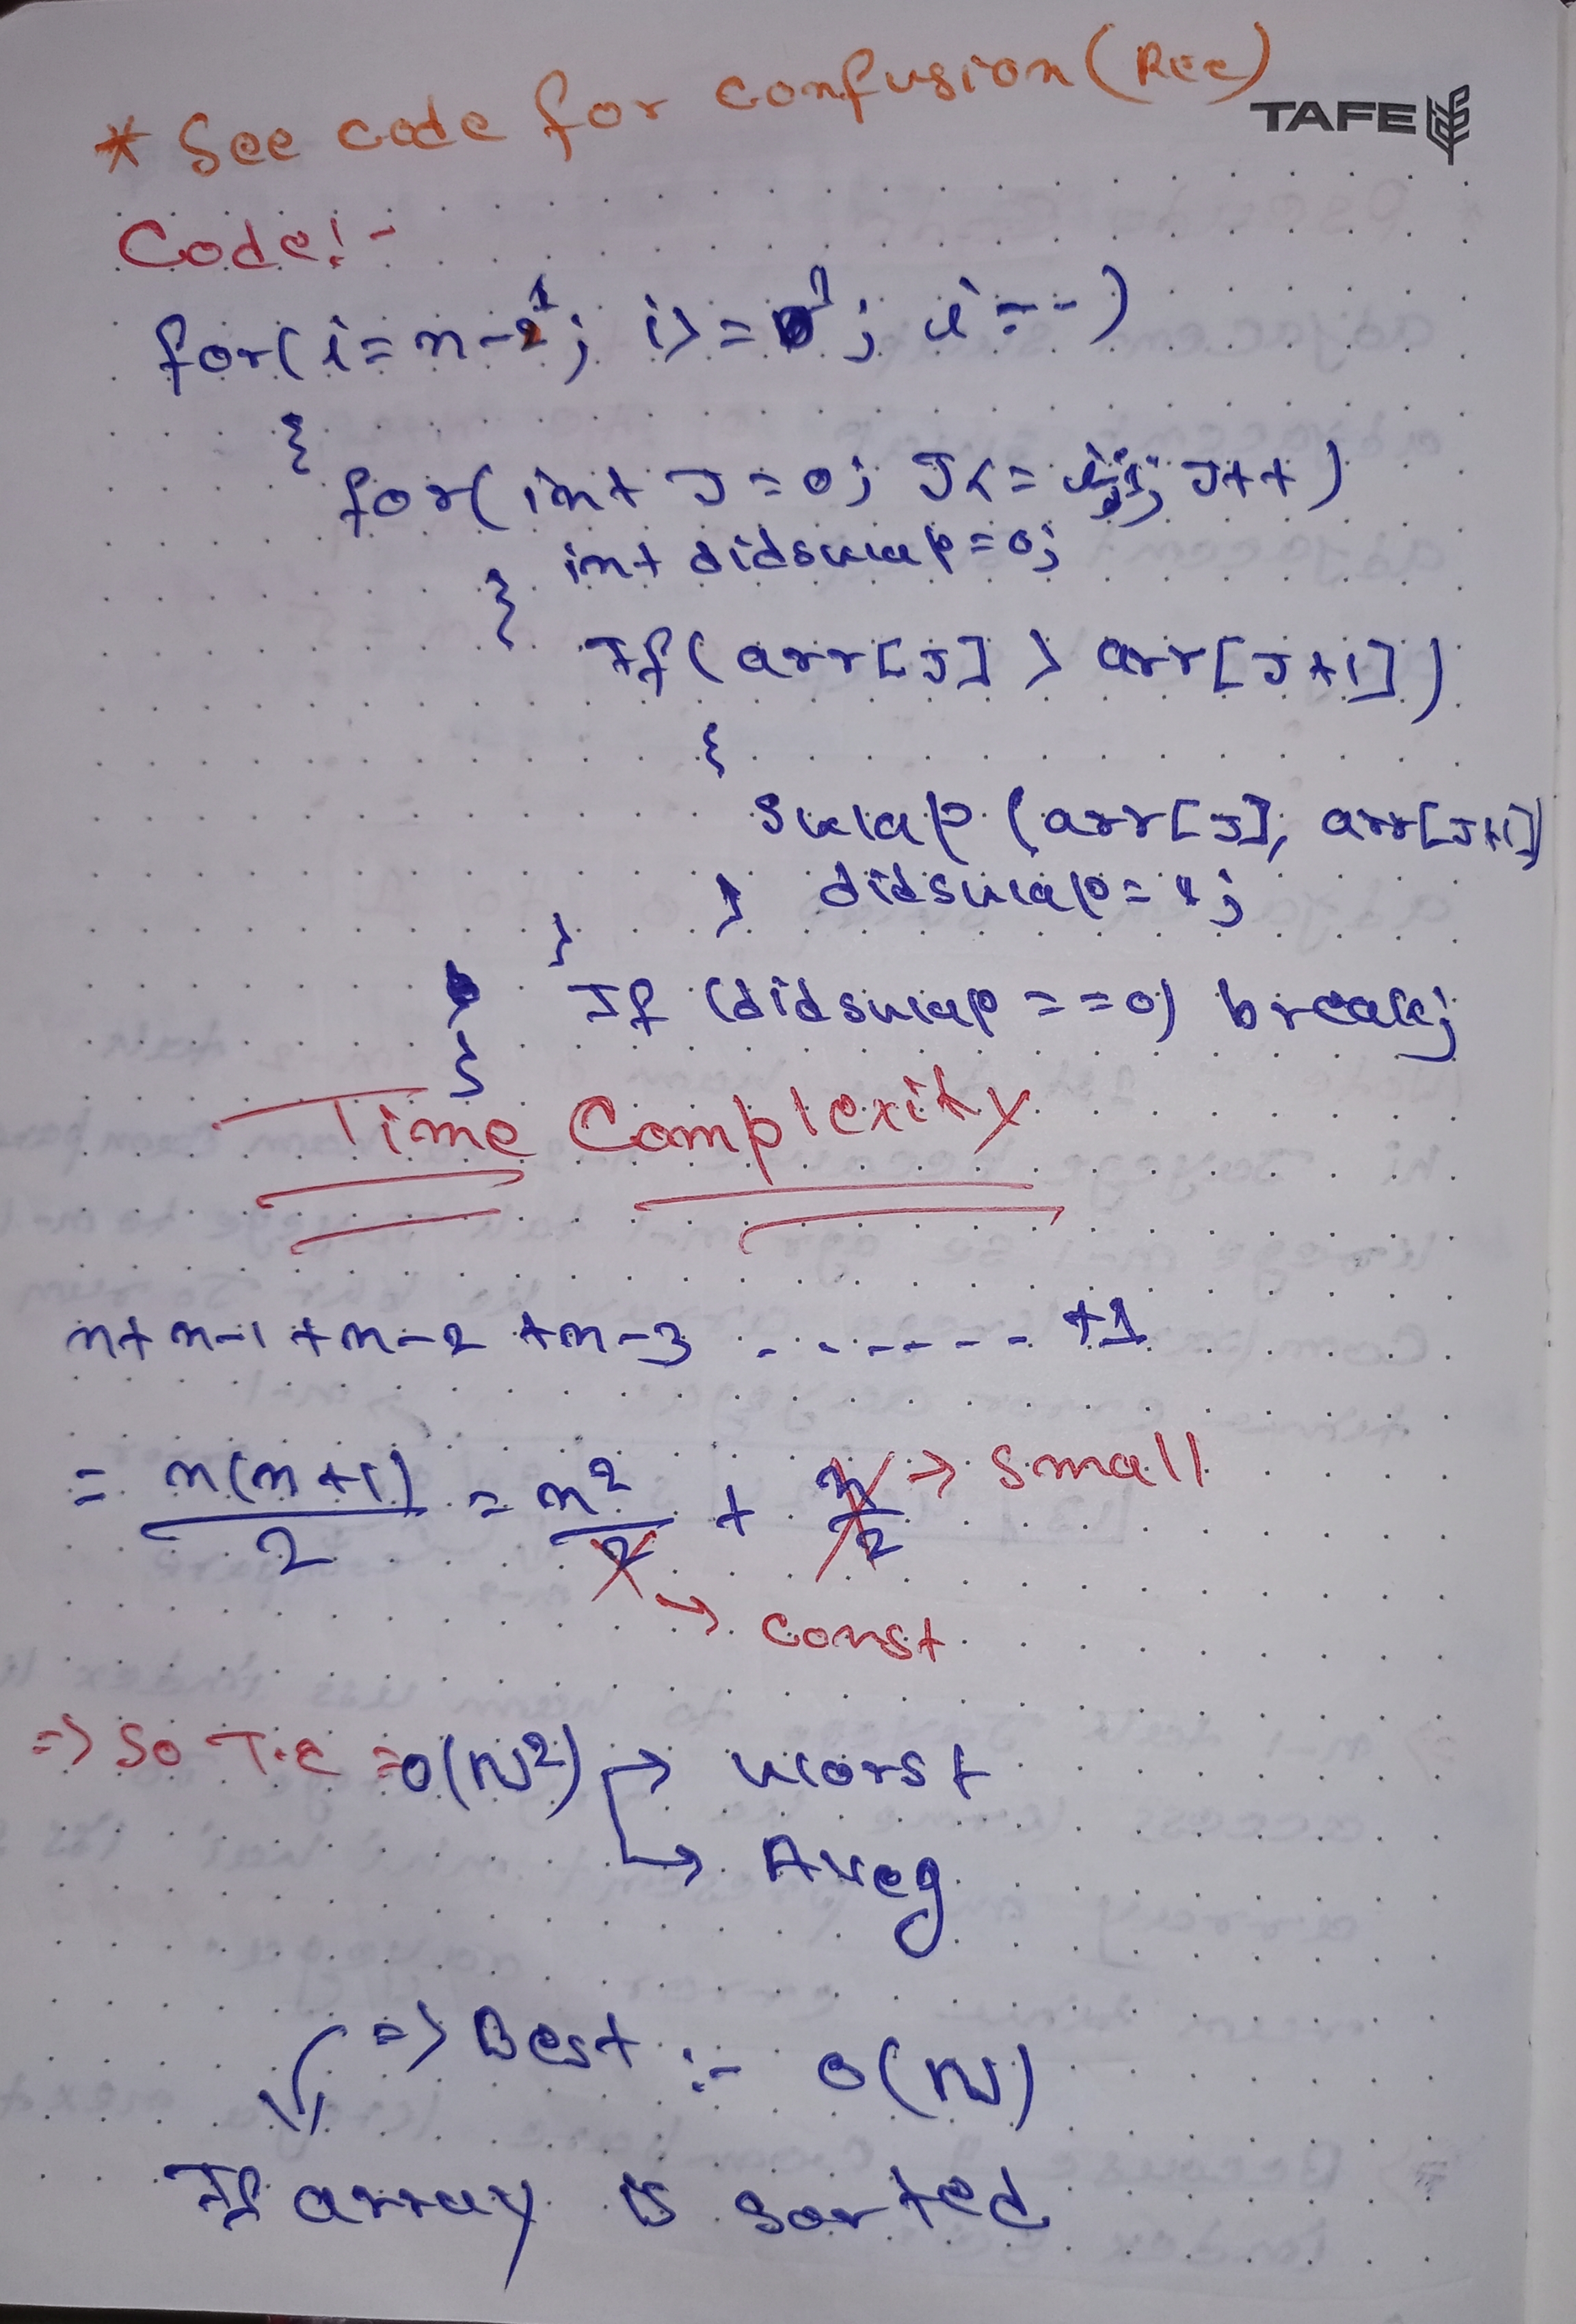 * See code for confusion (Rec)
TAFE
Code:-
for(i=n-1; i>=1; i--)
{
for(int J=0; J<=i-1; J++)
{ int didswap=0;
If(arr[J] > arr[J+1])
{
swap (arr[J], arr[J+1])
} didswap=1;
}
If (didswap==0) break;
}
Time Complexity
n+n-1+n-2+n-3 ........ +1
= n(n+1)/2 = n²/2 + n/2 → small
→ const
=> So T.C = O(N²) → worst
→ Aveg
=> Best :- O(N)
If array is sorted